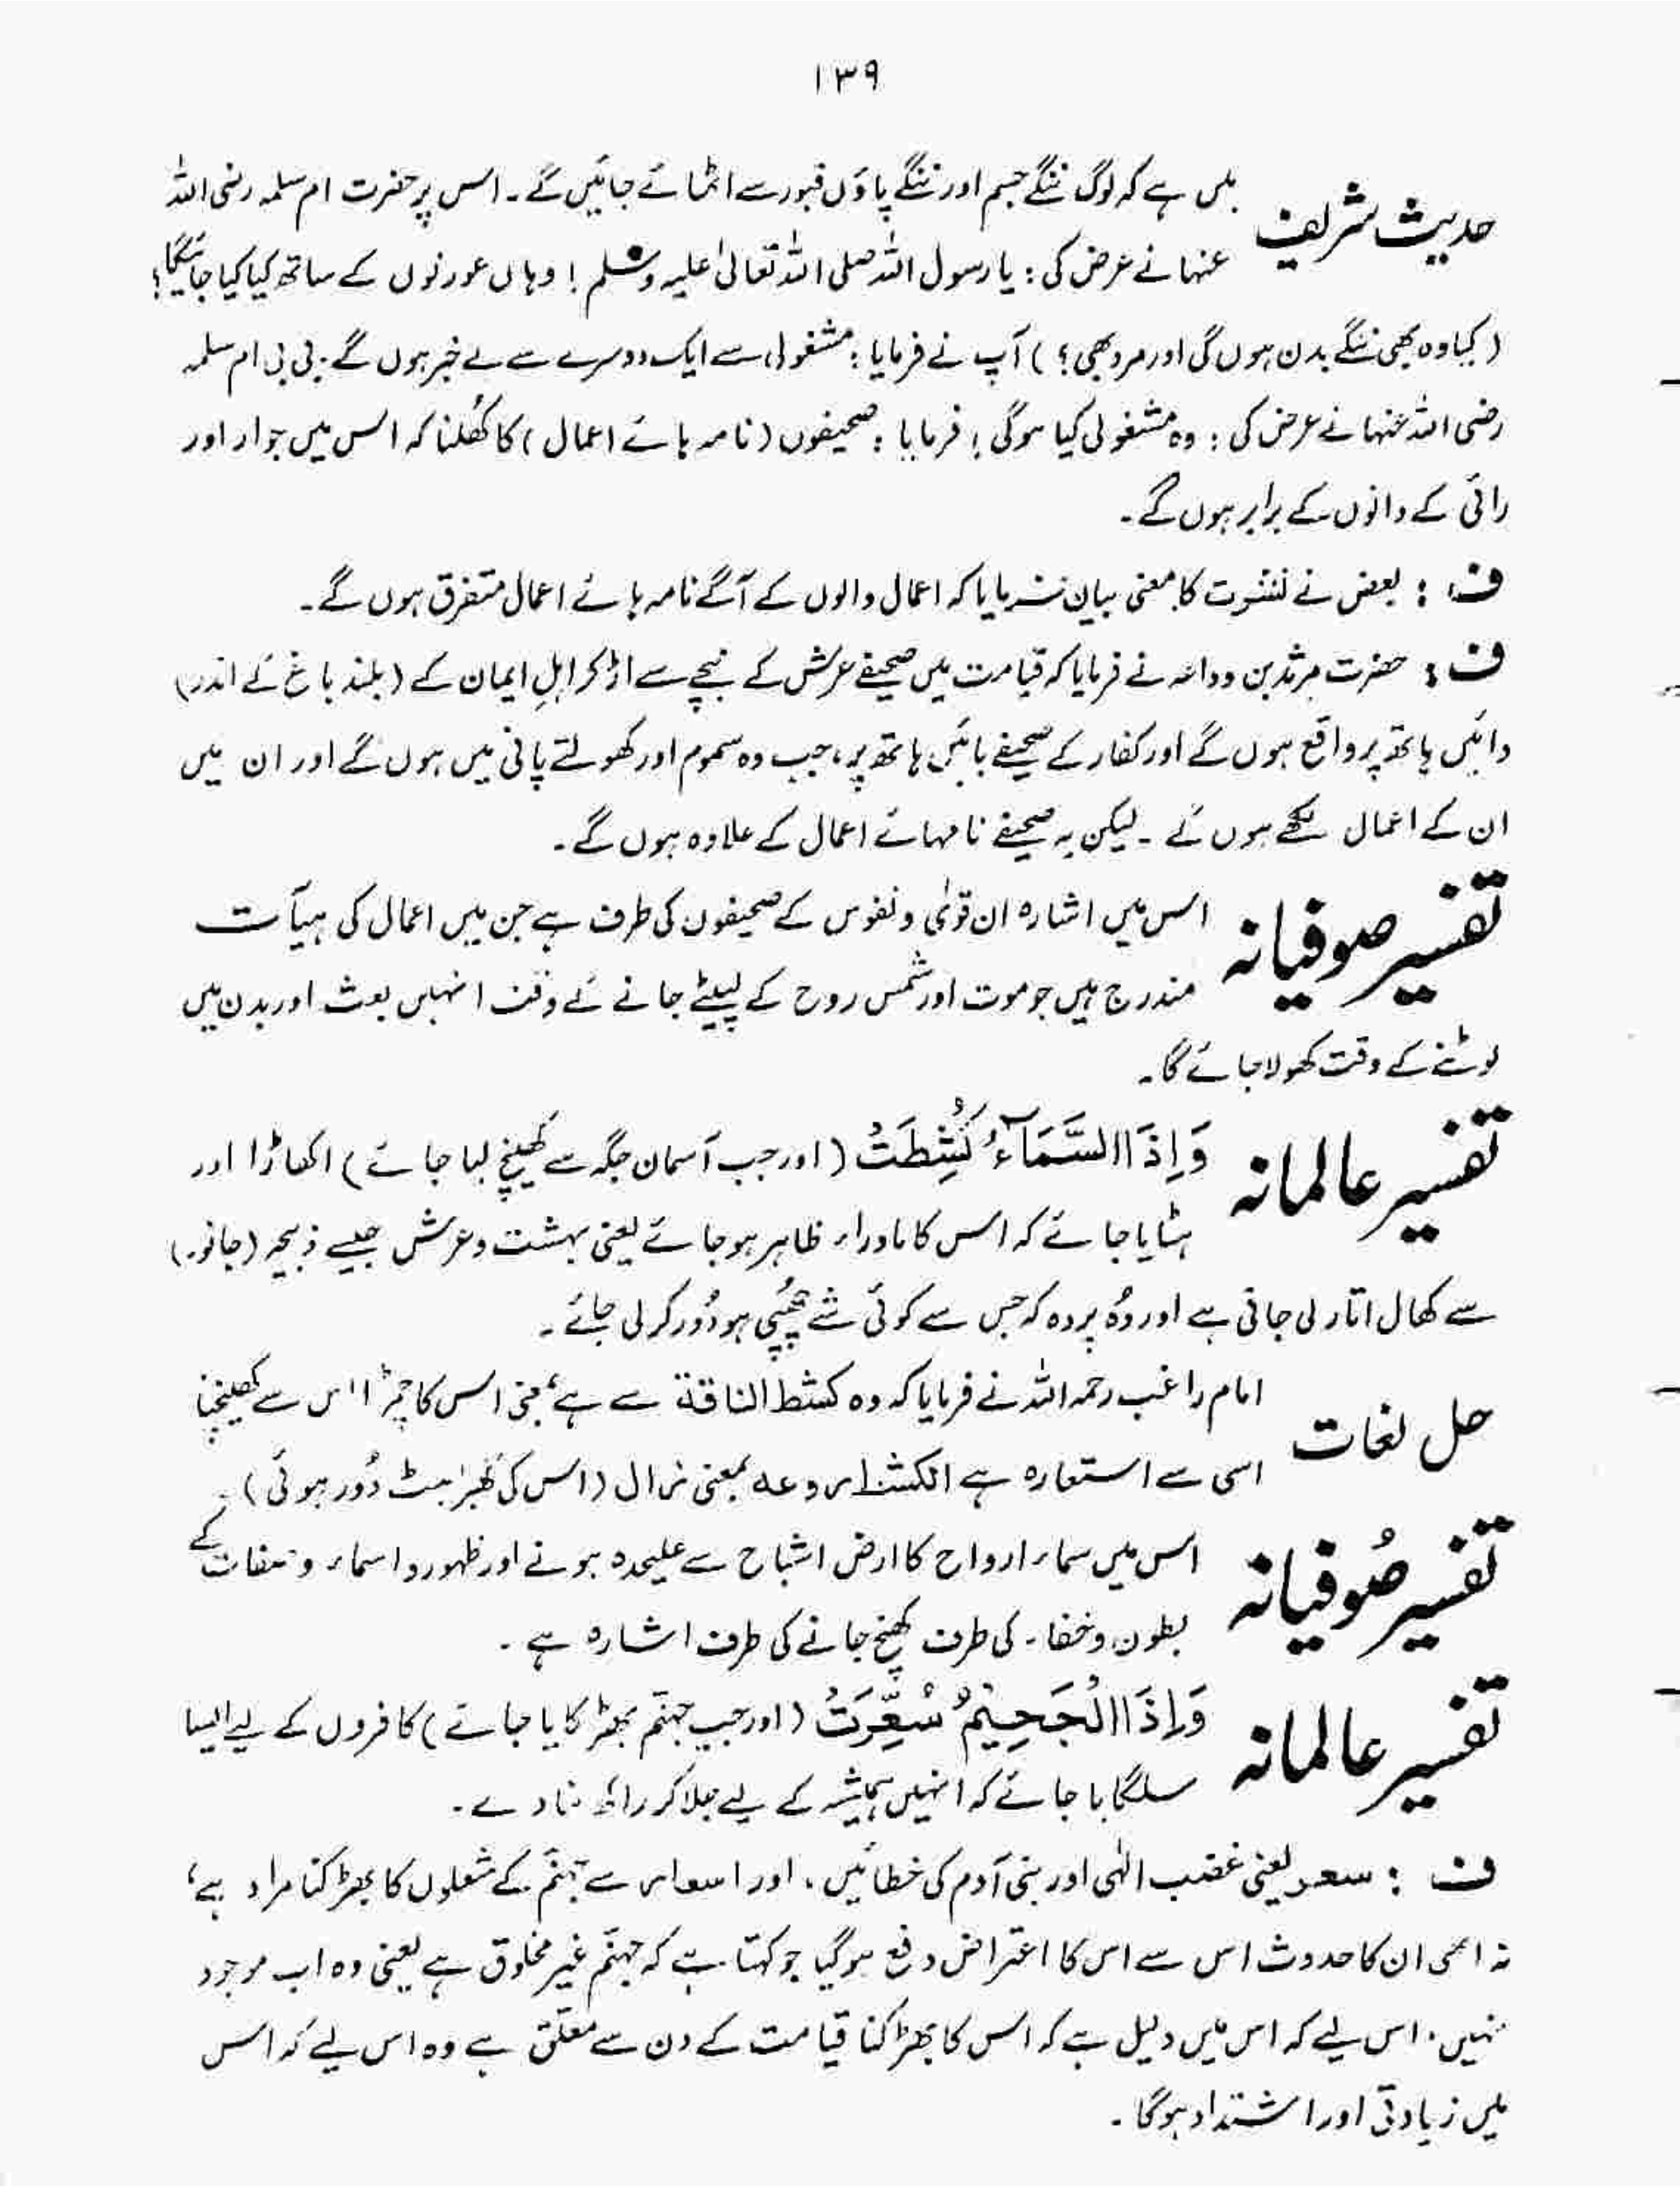 ۱۳۹
حدیث شریف میں ہے کہ لوگ ننگے جسم اور ننگے پاؤں قبور سے اٹھائے جائیں گے۔ اس پر حضرت ام سلمہ رضی اللہ
عنہا نے عرض کی : یا رسول اللہ صلی اللہ تعالیٰ علیہ وسلم ! وہاں عورتوں کے ساتھ کیا کیا جائیگا؟
(کیا وہ بھی ننگے بدن ہوں گی اور مرد بھی؟) آپ نے فرمایا : مشغولی سے ایک دوسرے سے بے خبر ہوں گے۔ بی بی ام سلمہ
رضی اللہ عنہا نے عرض کی : وہ مشغولی کیا ہوگی ! فرمایا : صحیفوں (نامہ ہائے اعمال) کا کھُلنا کہ اس میں جوار اور
رائی کے دانوں کے برابر ہوں گے۔
ف : بعض نے نشرت کا معنی بیان فرمایا کہ اعمال والوں کے آگے نامہ ہائے اعمال متفرق ہوں گے۔
ف : حضرت مرثد بن وداعہ نے فرمایا کہ قیامت میں صحیفے عرش کے نیچے سے اڑ کر اہلِ ایمان کے (بلند باغ کے اندر)
دائیں ہاتھ پر واقع ہوں گے اور کفار کے صحیفے بائیں ہاتھ پر، جب وہ سموم اور کھولتے پانی میں ہوں گے اور ان میں
ان کے اعمال لکھے ہوں گے ۔ لیکن یہ صحیفے نامہائے اعمال کے علاوہ ہوں گے۔
تفسیر صوفیانہ اس میں اشارہ ان قویٰ و نفوس کے صحیفوں کی طرف ہے جن میں اعمال کی ہیآت
مندرج ہیں جو موت اور شمس روح کے لپیٹے جانے کے وقت انہیں بعث اور بدن میں
لوٹنے کے وقت کھولا جائے گا۔
تفسیر عالمانہ وَاِذَا السَّمَآءُ كُشِطَتْ (اور جب آسمان جگہ سے کھینچ لیا جائے) اکھاڑا اور
ہٹایا جائے کہ اس کا ماوراء ظاہر ہو جائے یعنی بہشت و عرش جیسے ذبیحہ (جانور)
سے کھال اتار لی جاتی ہے اور وُہ پردہ کہ جس سے کوئی شے چھُپی ہو دُور کر لی جائے ۔
حل لغات امام راغب رحمہ اللہ نے فرمایا کہ وہ کشط الناقۃ سے ہے بمعنی اس کا چمڑا اس سے کھینچنا
اسی سے استعارہ ہے انکشط روعہ بمعنی زال (اس کی گھبراہٹ دُور ہوئی) ۔
تفسیر صُوفیانہ اس میں سماء ارواح کا ارض اشباح سے علیحدہ ہونے اور ظہور و اسماء و صفات کے
بطون و خفاء کی طرف کھنچ جانے کی طرف اشارہ ہے ۔
تفسیر عالمانہ وَاِذَا الْجَحِيْمُ سُعِّرَتْ (اور جب جہنّم بھڑکایا جائے) کافروں کے لیے ایسا
سلگایا جائے کہ انہیں ہمیشہ کے لیے جلا کر راکھ بنا دے۔
ف : سعر یعنی غضب الٰہی اور بنی آدم کی خطائیں ، اور اسعار سے جہنّم کے شعلوں کا بھڑکنا مراد ہے،
نہ ابھی ان کا حدوث اس سے اس کا اعتراض دفع ہوگیا جو کہتا ہے کہ جہنّم غیر مخلوق ہے یعنی وہ اب موجود
نہیں ، اس لیے کہ اس میں دلیل ہے کہ اس کا بھڑکنا قیامت کے دن سے معلّق ہے وہ اس لیے کہ اس
میں زیادتی اور اشتداد ہوگا ۔